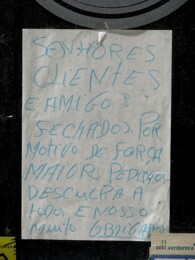 SENHORES
CLIENTES
E AMIGOS
FECHADOS. POR
MOTIVO DE FORÇA
MAIOR. PEDIMOS
DESCULPA A
TODOS, E NOSSO
MUITO OBRIGADOS